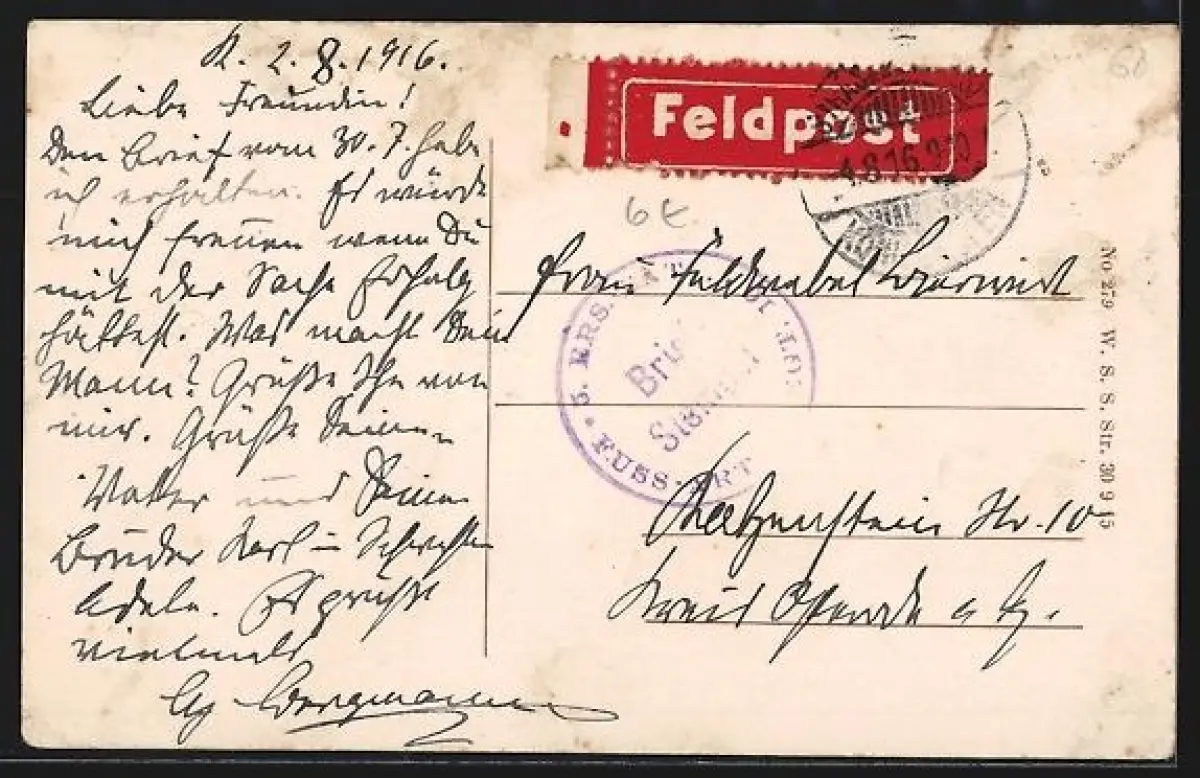 K. 2.8.1916.
Liebe Freundin!
Den Brief vom 30.7. habe
ich erhalten. Es würde
mich freuen wenn Du
mit der Sache Erfolg
hättest. Was macht Dein
Mann? Grüße Ihn von
mir. Grüße Deinen
Vater und Deinen
Bruder Karl u. Schwester
Adele. Es grüßt
vielmals
Bergmann
Feldpost
4.8.16.9
6€
60
Frau Feldwebel
5. ERS. BAT
FUSS-ART
Brief
Stempel
Str. 10
Kreis
No 279 W. S. S. Str. 30 9 15